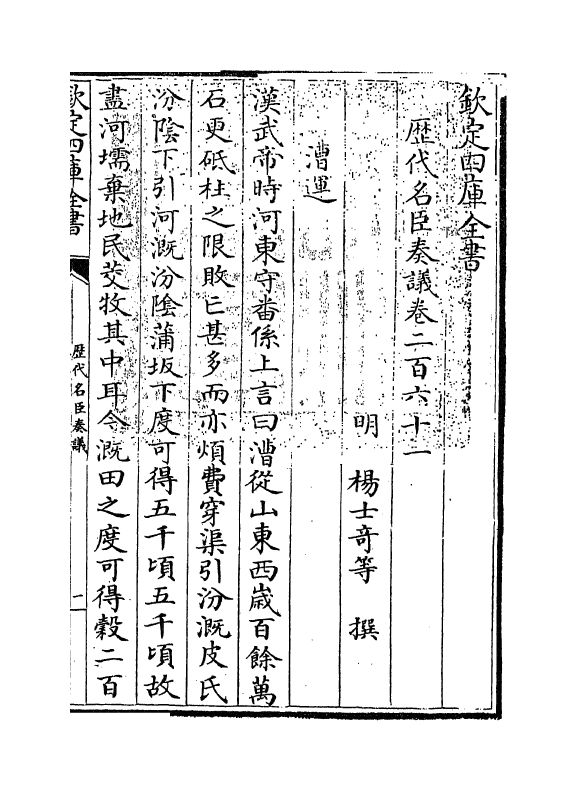 欽定四庫全書
歴代名臣奏議卷二百六十一
明 楊士奇等 撰
漕運
漢武帝時河東守番係上言曰漕從山東西歲百餘萬
石更砥柱之限敗亡甚多而亦煩費穿渠引汾溉皮氏
汾陰下引河溉汾陰蒲坂下度可得五千頃五千頃故
盡河壖棄地民茭牧其中耳今溉田之度可得穀二百
欽定四庫全書
歴代名臣奏議
一